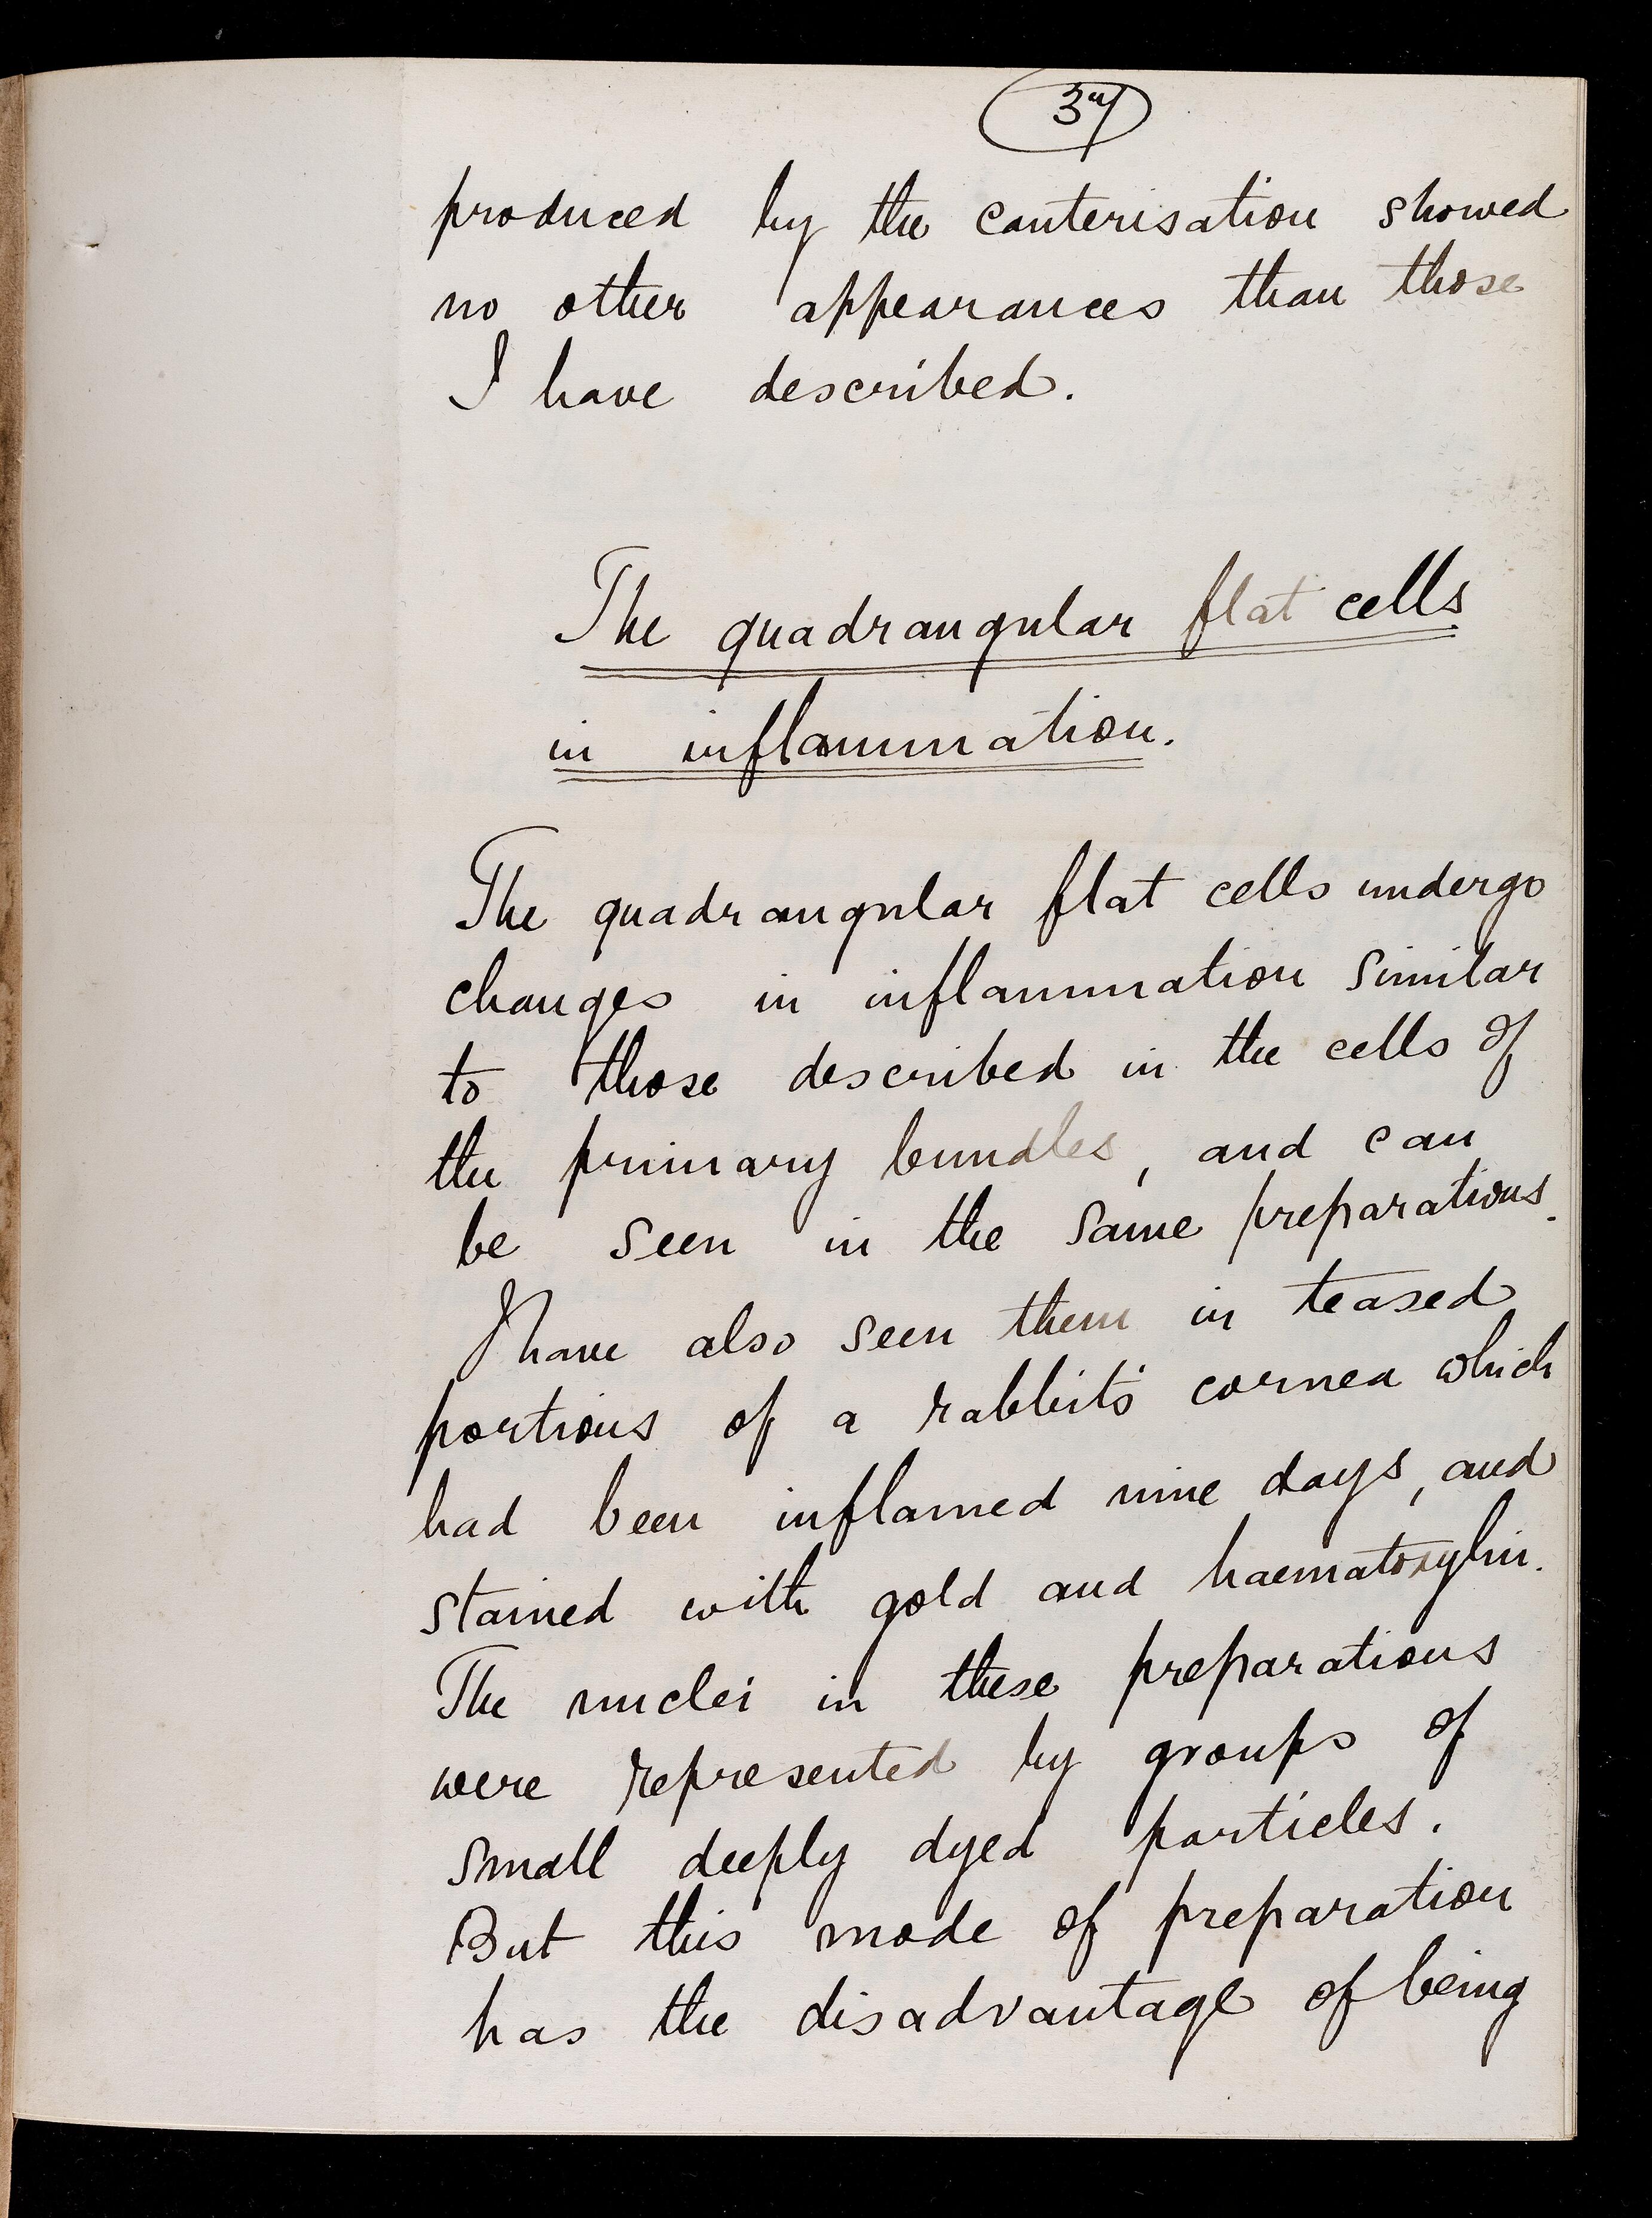 37
produced by the cauterisation showed
no other appearances than those
I have described.
The quadrangular flat cells
in inflammation.
The quadrangular flat cells undergo
changes in inflammation similar
to those described in the cells of
the primary bundles, and can
be seen in the same preparations.
I have also seen them in teased
portions of a rabbit's cornea which
had been inflamed nine days, and
stained with gold and haematoxylin.
The nuclei in these preparations
were represented by groups of
small deeply dyed particles.
But this mode of preparation
has the disadvantage of being